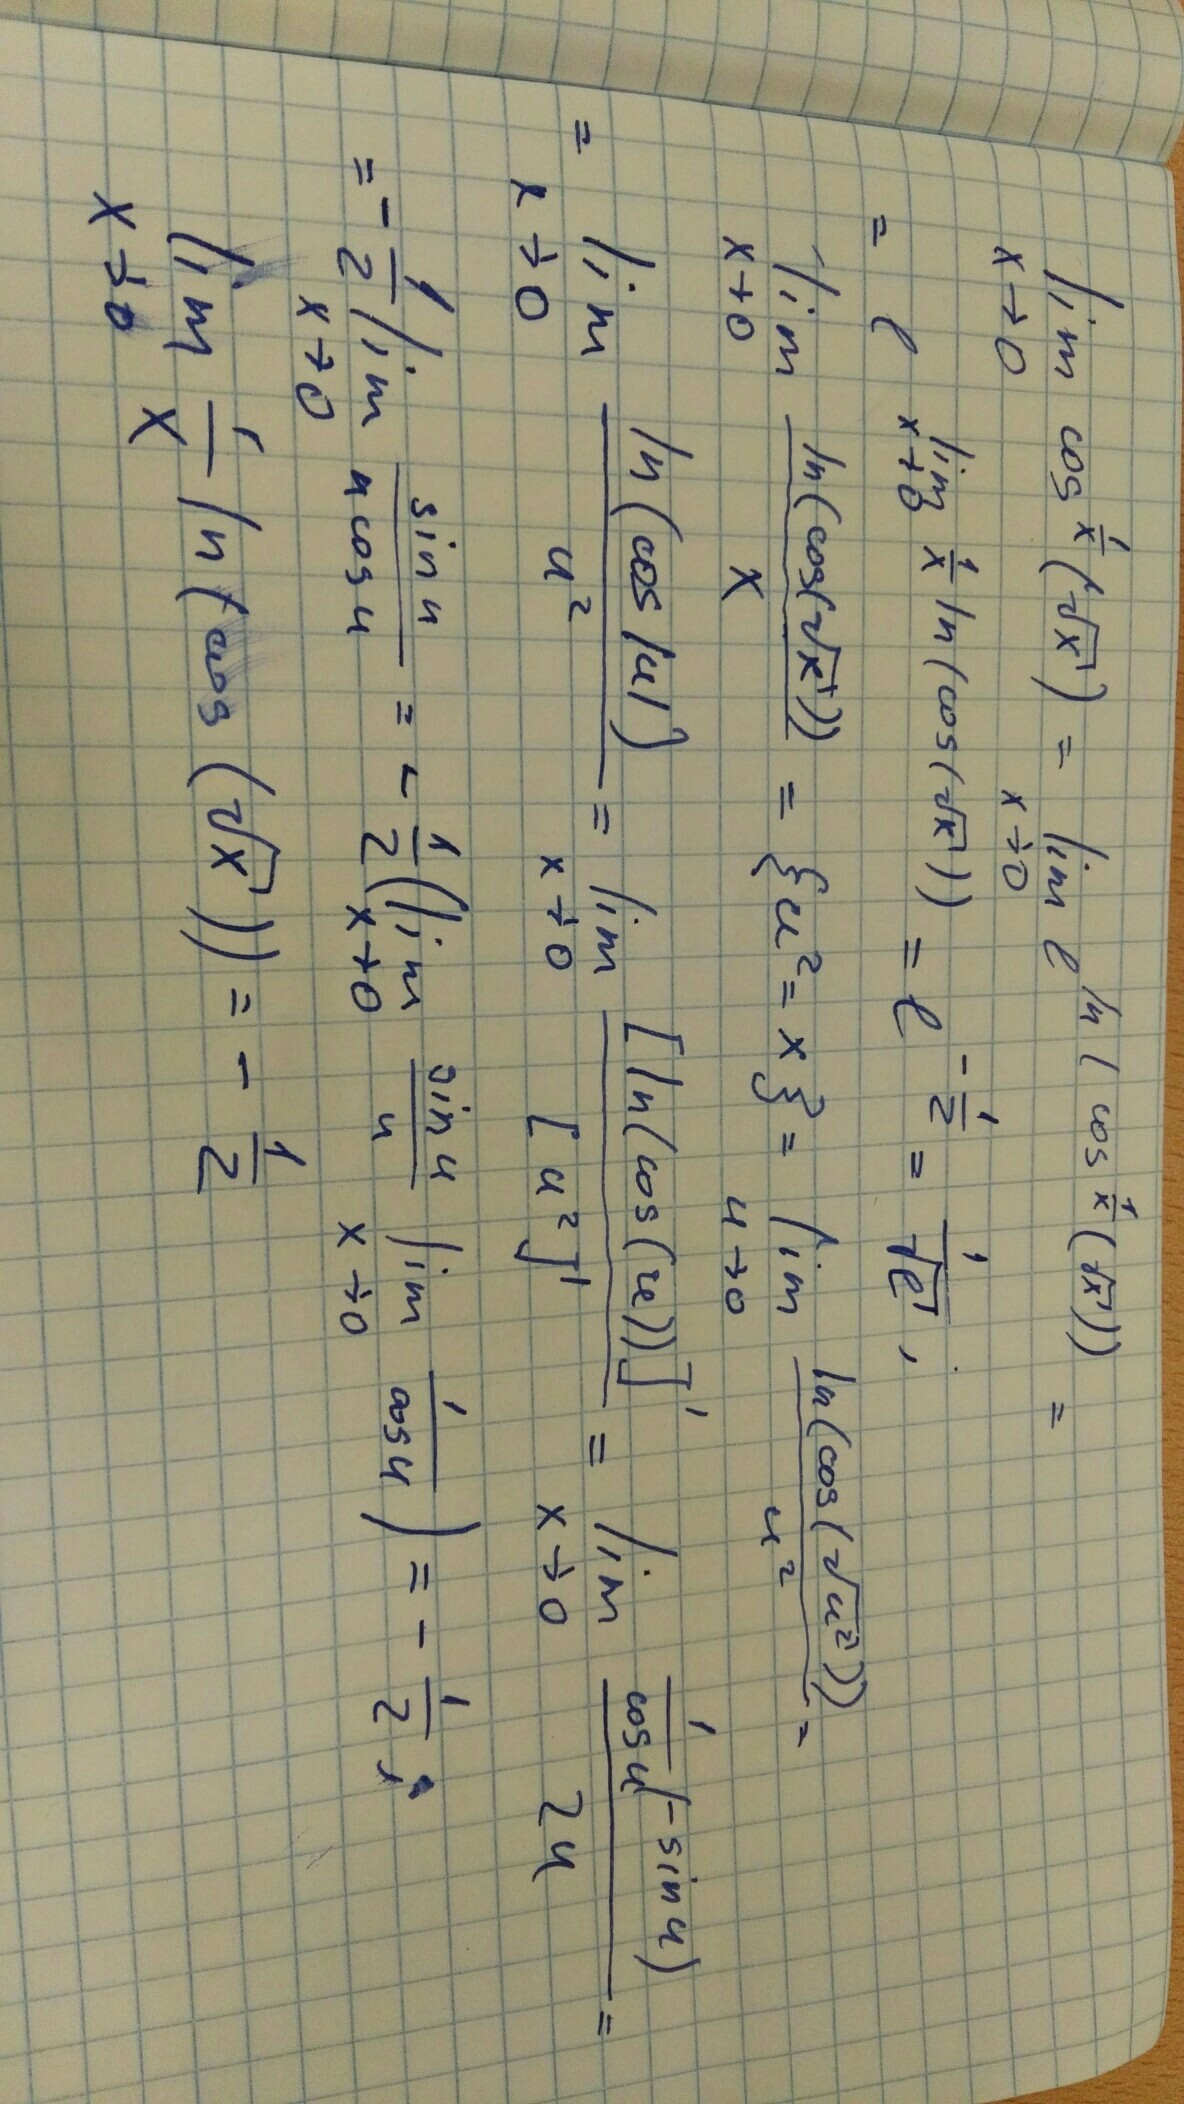 lim cos^{1/x}(√x) = lim e^{ln(cos^{1/x}(√x))} =
x→0 x→0
= e^{lim_{x→0} 1/x ln(cos(√x))} = e^{-1/2} = 1/√e ,
lim_{x→0} ln(cos(√x))/x = {u² = x} = lim_{u→0} ln(cos(√u²))/u² =
= lim_{x→0} ln(cos|u|)/u² = lim_{x→0} [ln(cos(u))]'/[u²]' = lim_{x→0} 1/cos u (-sin u)/2u =
= -1/2 lim_{x→0} sin u/u cos u = -1/2 (lim_{x→0} sin u/u lim_{x→0} 1/cos u) = -1/2 ;
lim_{x→0} 1/x ln(cos(√x)) = -1/2